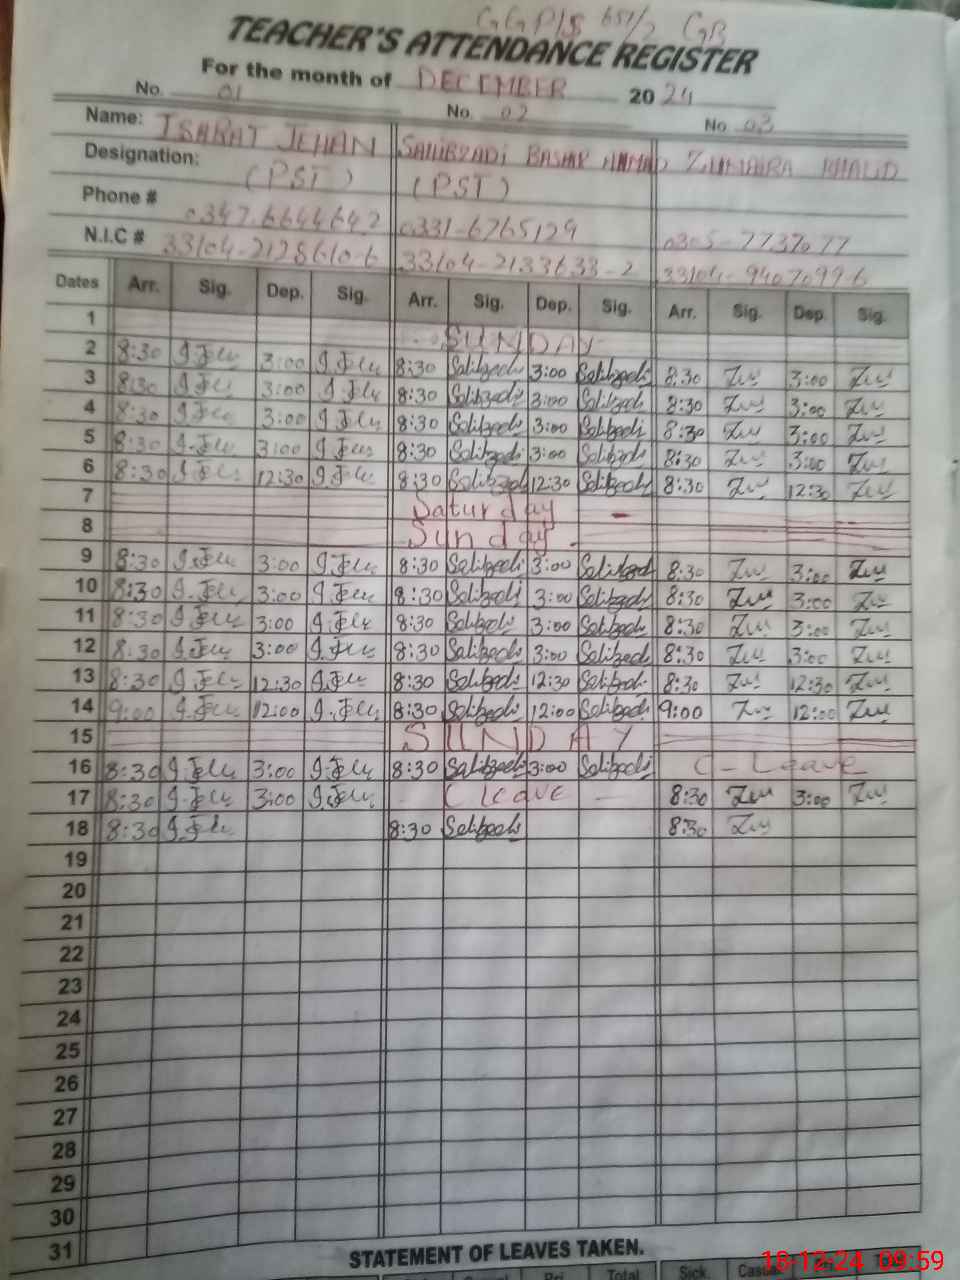 GGP/S 651/2 GB
TEACHER'S ATTENDANCE REGISTER
For the month of DECEMBER 2024
No. 01 No. 02 No. 03
Name: ISARAT JEHAN SAHIBZADI BASHIR AHMAD ZUMAIRA KHALID
Designation: (PST) (PST)
Phone # 0347.6644642 0331-6765129 0305-7737077
N.I.C # 33104-2128610-6 33104-2133633-2 33104-9407099-6
Dates Arr. Sig. Dep. Sig. Arr. Sig. Dep. Sig. Arr. Sig. Dep. Sig.
1 SUNDAY
2 8:30 3:00 8:30 Sahibzadi 3:00 Sahibzadi 8:30 Zum 3:00 Zum
3 8:30 3:00 8:30 Sahibzadi 3:00 Sahibzadi 8:30 Zum 3:00 Zum
4 8:30 3:00 8:30 Sahibzadi 3:00 Sahibzadi 8:30 Zum 3:00 Zum
5 8:30 3:00 8:30 Sahibzadi 3:00 Sahibzadi 8:30 Zum 3:00 Zum
6 8:30 12:30 8:30 Sahibzadi 12:30 Sahibzadi 8:30 Zum 12:30 Zum
7 Saturday
8 Sunday
9 8:30 3:00 8:30 Sahibzadi 3:00 Sahibzadi 8:30 Zum 3:00 Zum
10 8:30 3:00 8:30 Sahibzadi 3:00 Sahibzadi 8:30 Zum 3:00 Zum
11 8:30 3:00 8:30 Sahibzadi 3:00 Sahibzadi 8:30 Zum 3:00 Zum
12 8:30 3:00 8:30 Sahibzadi 3:00 Sahibzadi 8:30 Zum 3:00 Zum
13 8:30 12:30 8:30 Sahibzadi 12:30 Sahibzadi 8:30 Zum 12:30 Zum
14 9:00 12:00 8:30 Sahibzadi 12:00 Sahibzadi 9:00 Zum 12:00 Zum
15 SUNDAY
16 8:30 3:00 8:30 Sahibzadi 3:00 Sahibzadi C-Leave
17 8:30 3:00 C leave 8:30 Zum 3:00 Zum
18 8:30 8:30 Sahibzadi 8:30 Zum
19
20
21
22
23
24
25
26
27
28
29
30
31
STATEMENT OF LEAVES TAKEN.
Total Sick. Casual
18-12-24 09:59